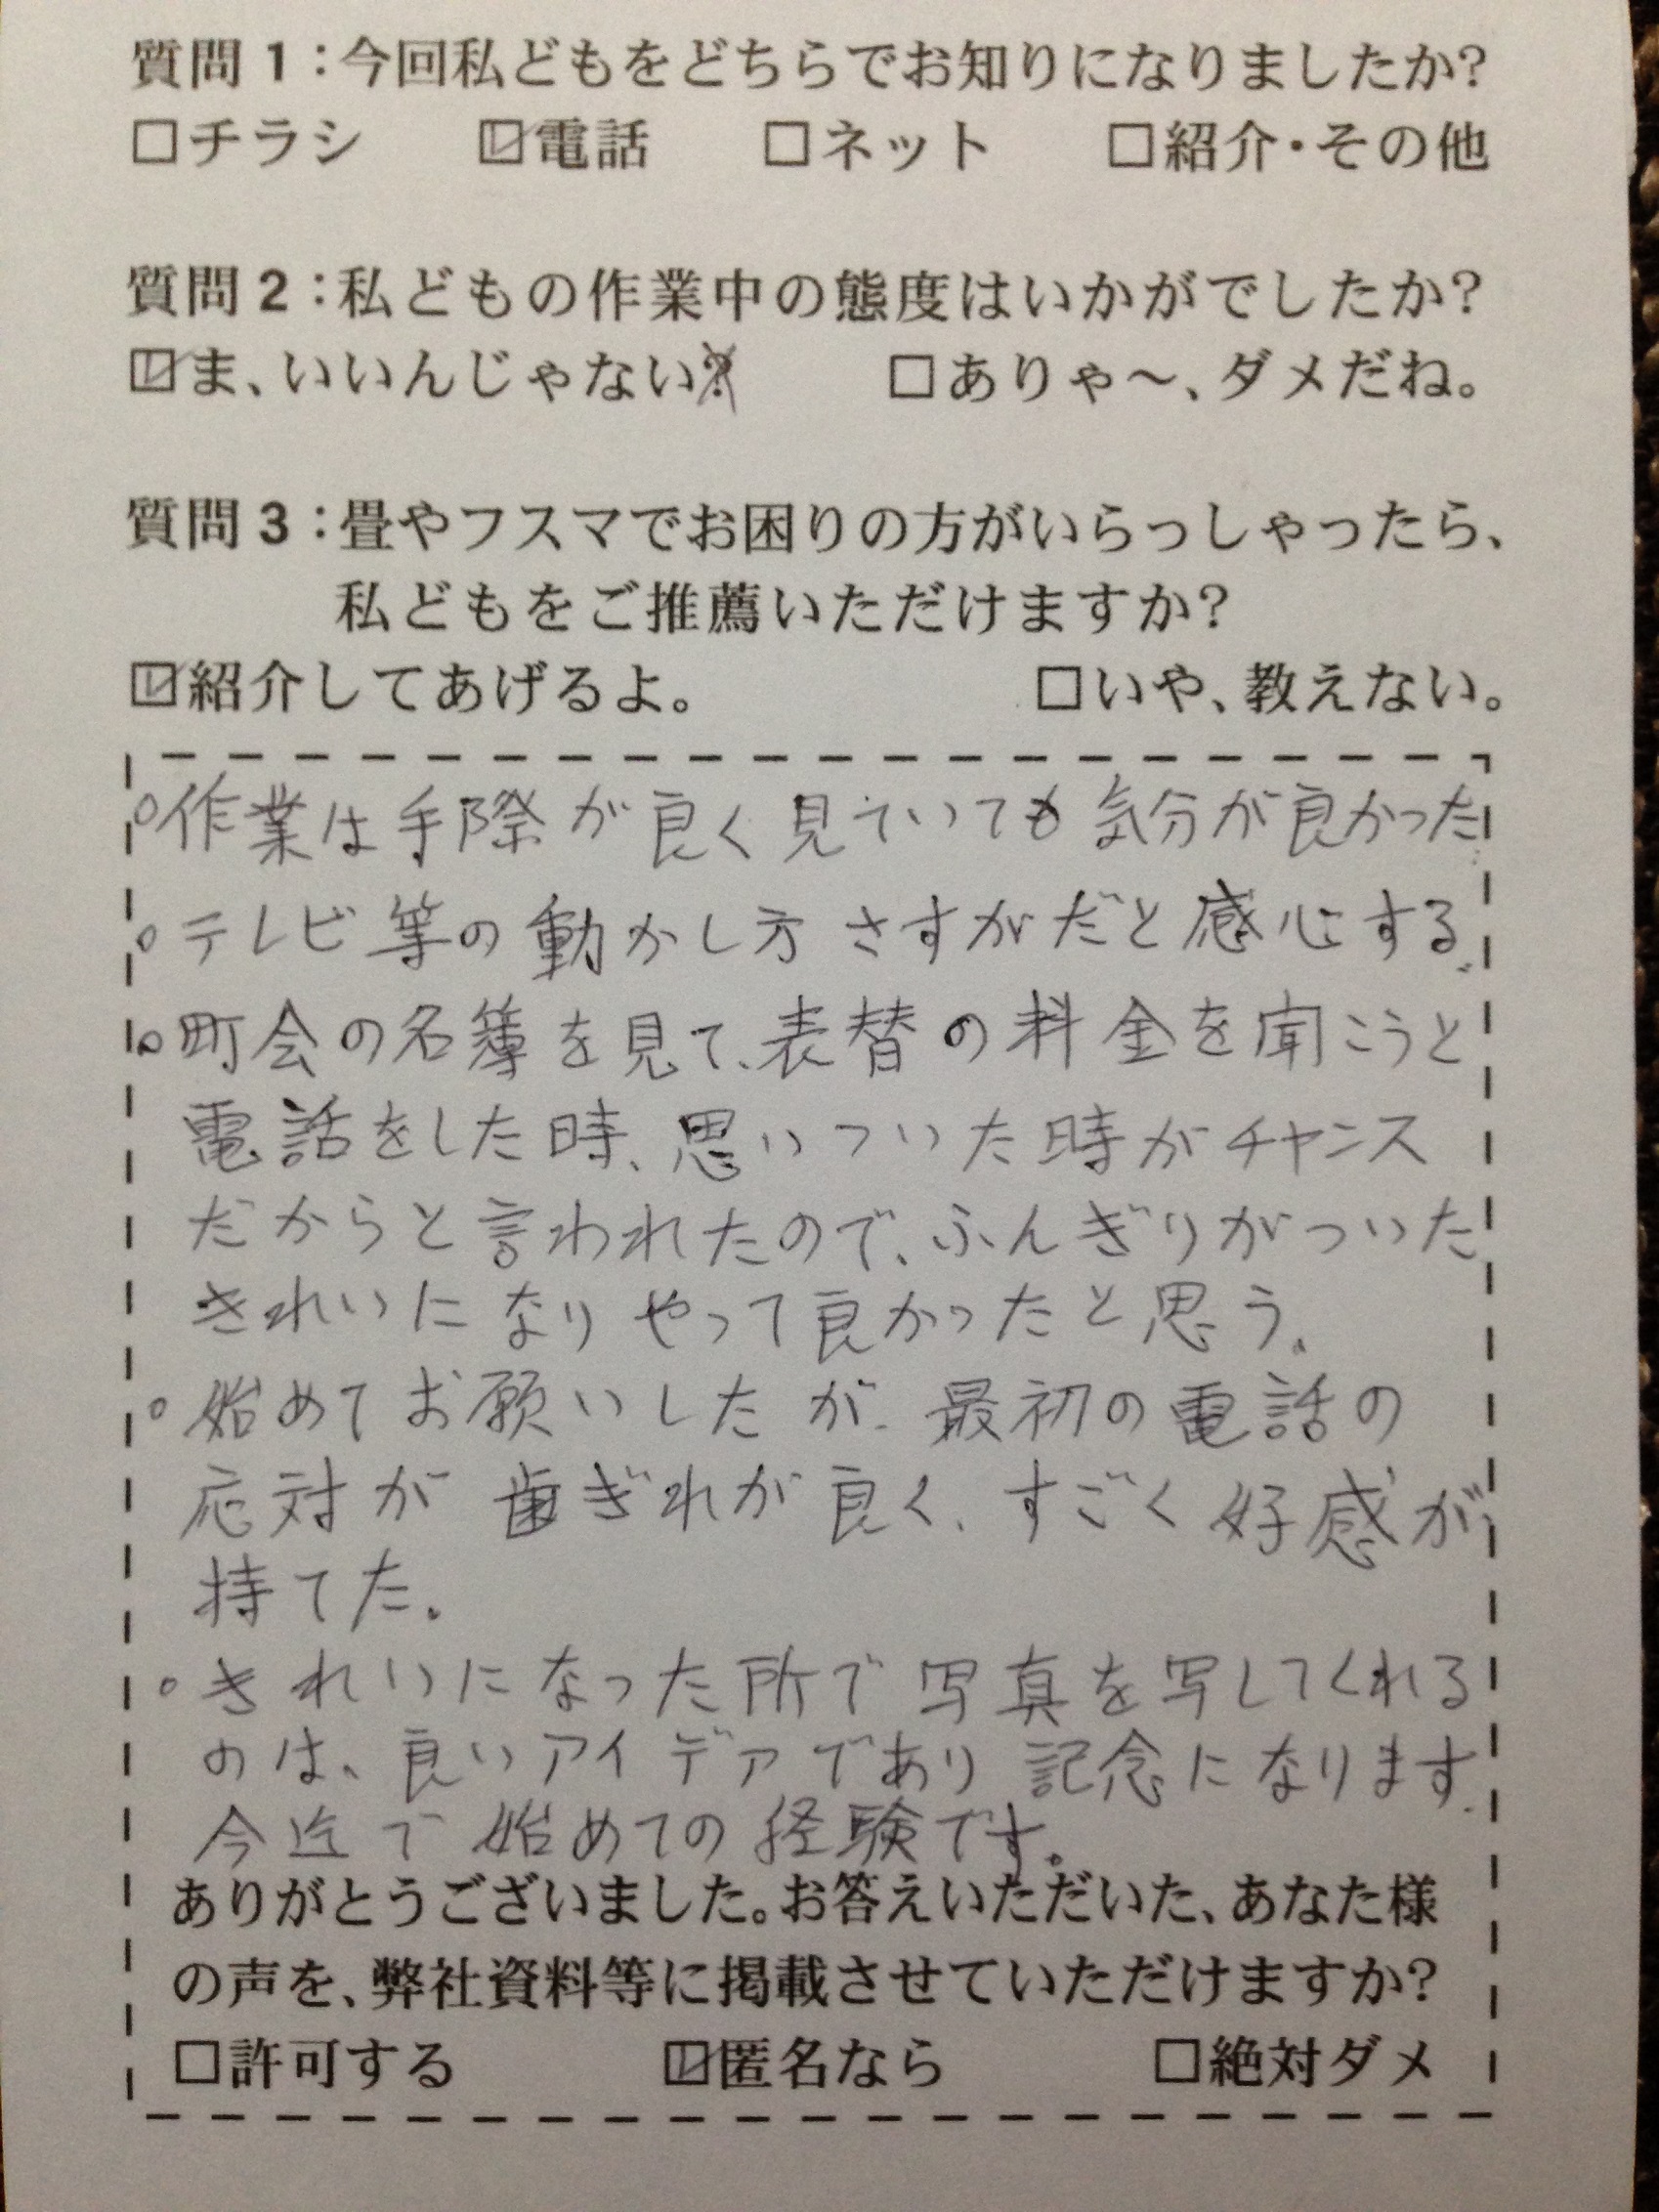 質問1：今回私どもをどちらでお知りになりましたか？
□チラシ ☑電話 □ネット □紹介・その他
質問2：私どもの作業中の態度はいかがでしたか？
☑ま、いいんじゃない？ □ありゃ〜、ダメだね。
質問3：畳やフスマでお困りの方がいらっしゃったら、
私どもをご推薦いただけますか？
☑紹介してあげるよ。 □いや、教えない。
○作業は手際が良く見ていても気分が良かった
○テレビ等の動かし方さすがだと感心する。
○町会の名簿を見て、表替の料金を聞こうと
電話をした時、思いついた時がチャンス
だからと言われたので、ふんぎりがついた
きれいになりやって良かったと思う。
○始めてお願いしたが、最初の電話の
応対が歯ぎれが良く、すごく好感が
持てた。
○きれいになった所で写真を写してくれる
のは、良いアイデアであり記念になります。
今迄で始めての経験です。
ありがとうございました。お答えいただいた、あなた様
の声を、弊社資料等に掲載させていただけますか？
□許可する ☑匿名なら □絶対ダメ